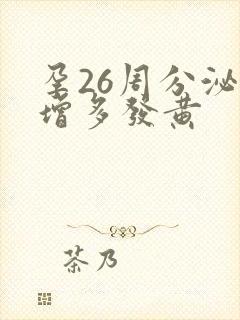 孕26周分泌
增多發黄
茶乃